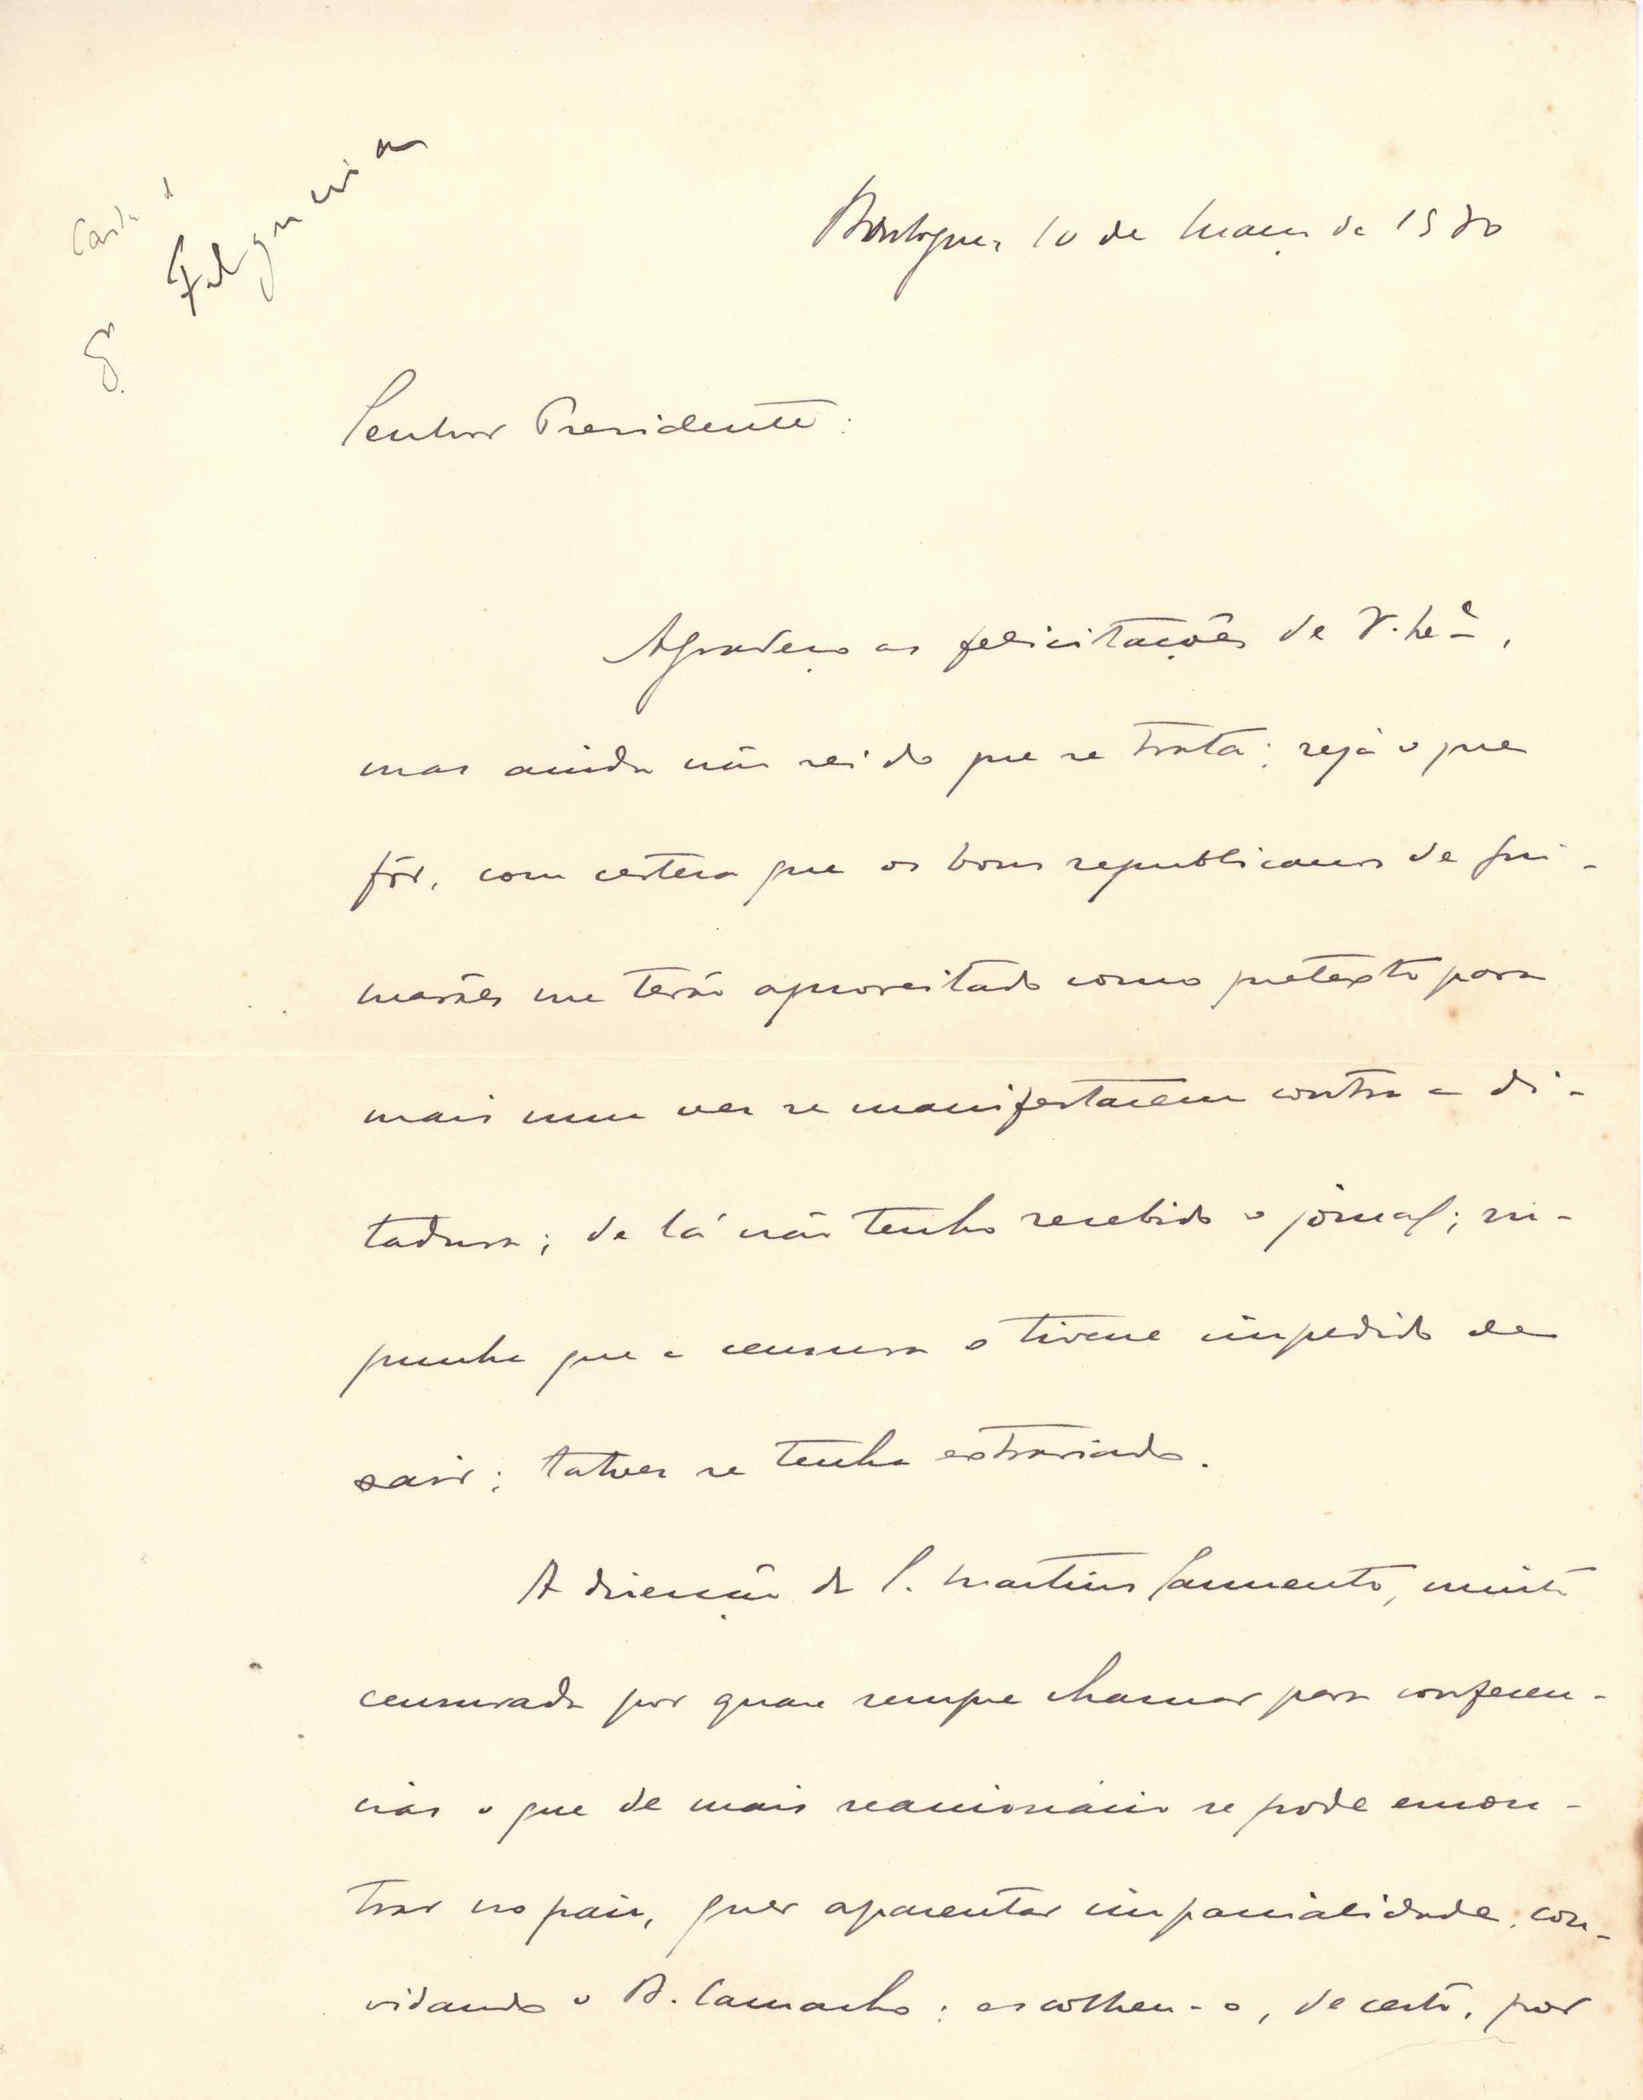 Carta d
Sr. Felgueiras
Boulogne, 10 de Março de 1930
Senhor Presidente:
Agradeço as felicitações de V. Exª,
mas ainda não sei do que se trata; seja o que
fôr, com certeza que os bons republicanos de Gui-
marães me terão aproveitado como pretexto para
mais uma vez se manifestarem contra a di-
tadura; de lá não tenho recebido o jornal; su-
punha que a censura o tivesse impedido de
sair; talvez se tenha extraviado.
A direcção da S. Martins Sarmento, muito
censurada por quase sempre chamar para conferen-
cias o que de mais reacionário se pode encon-
trar no país, quer aparentar imparcialidade, con-
vidando o B. Camacho; escolheu-o, de certo, por